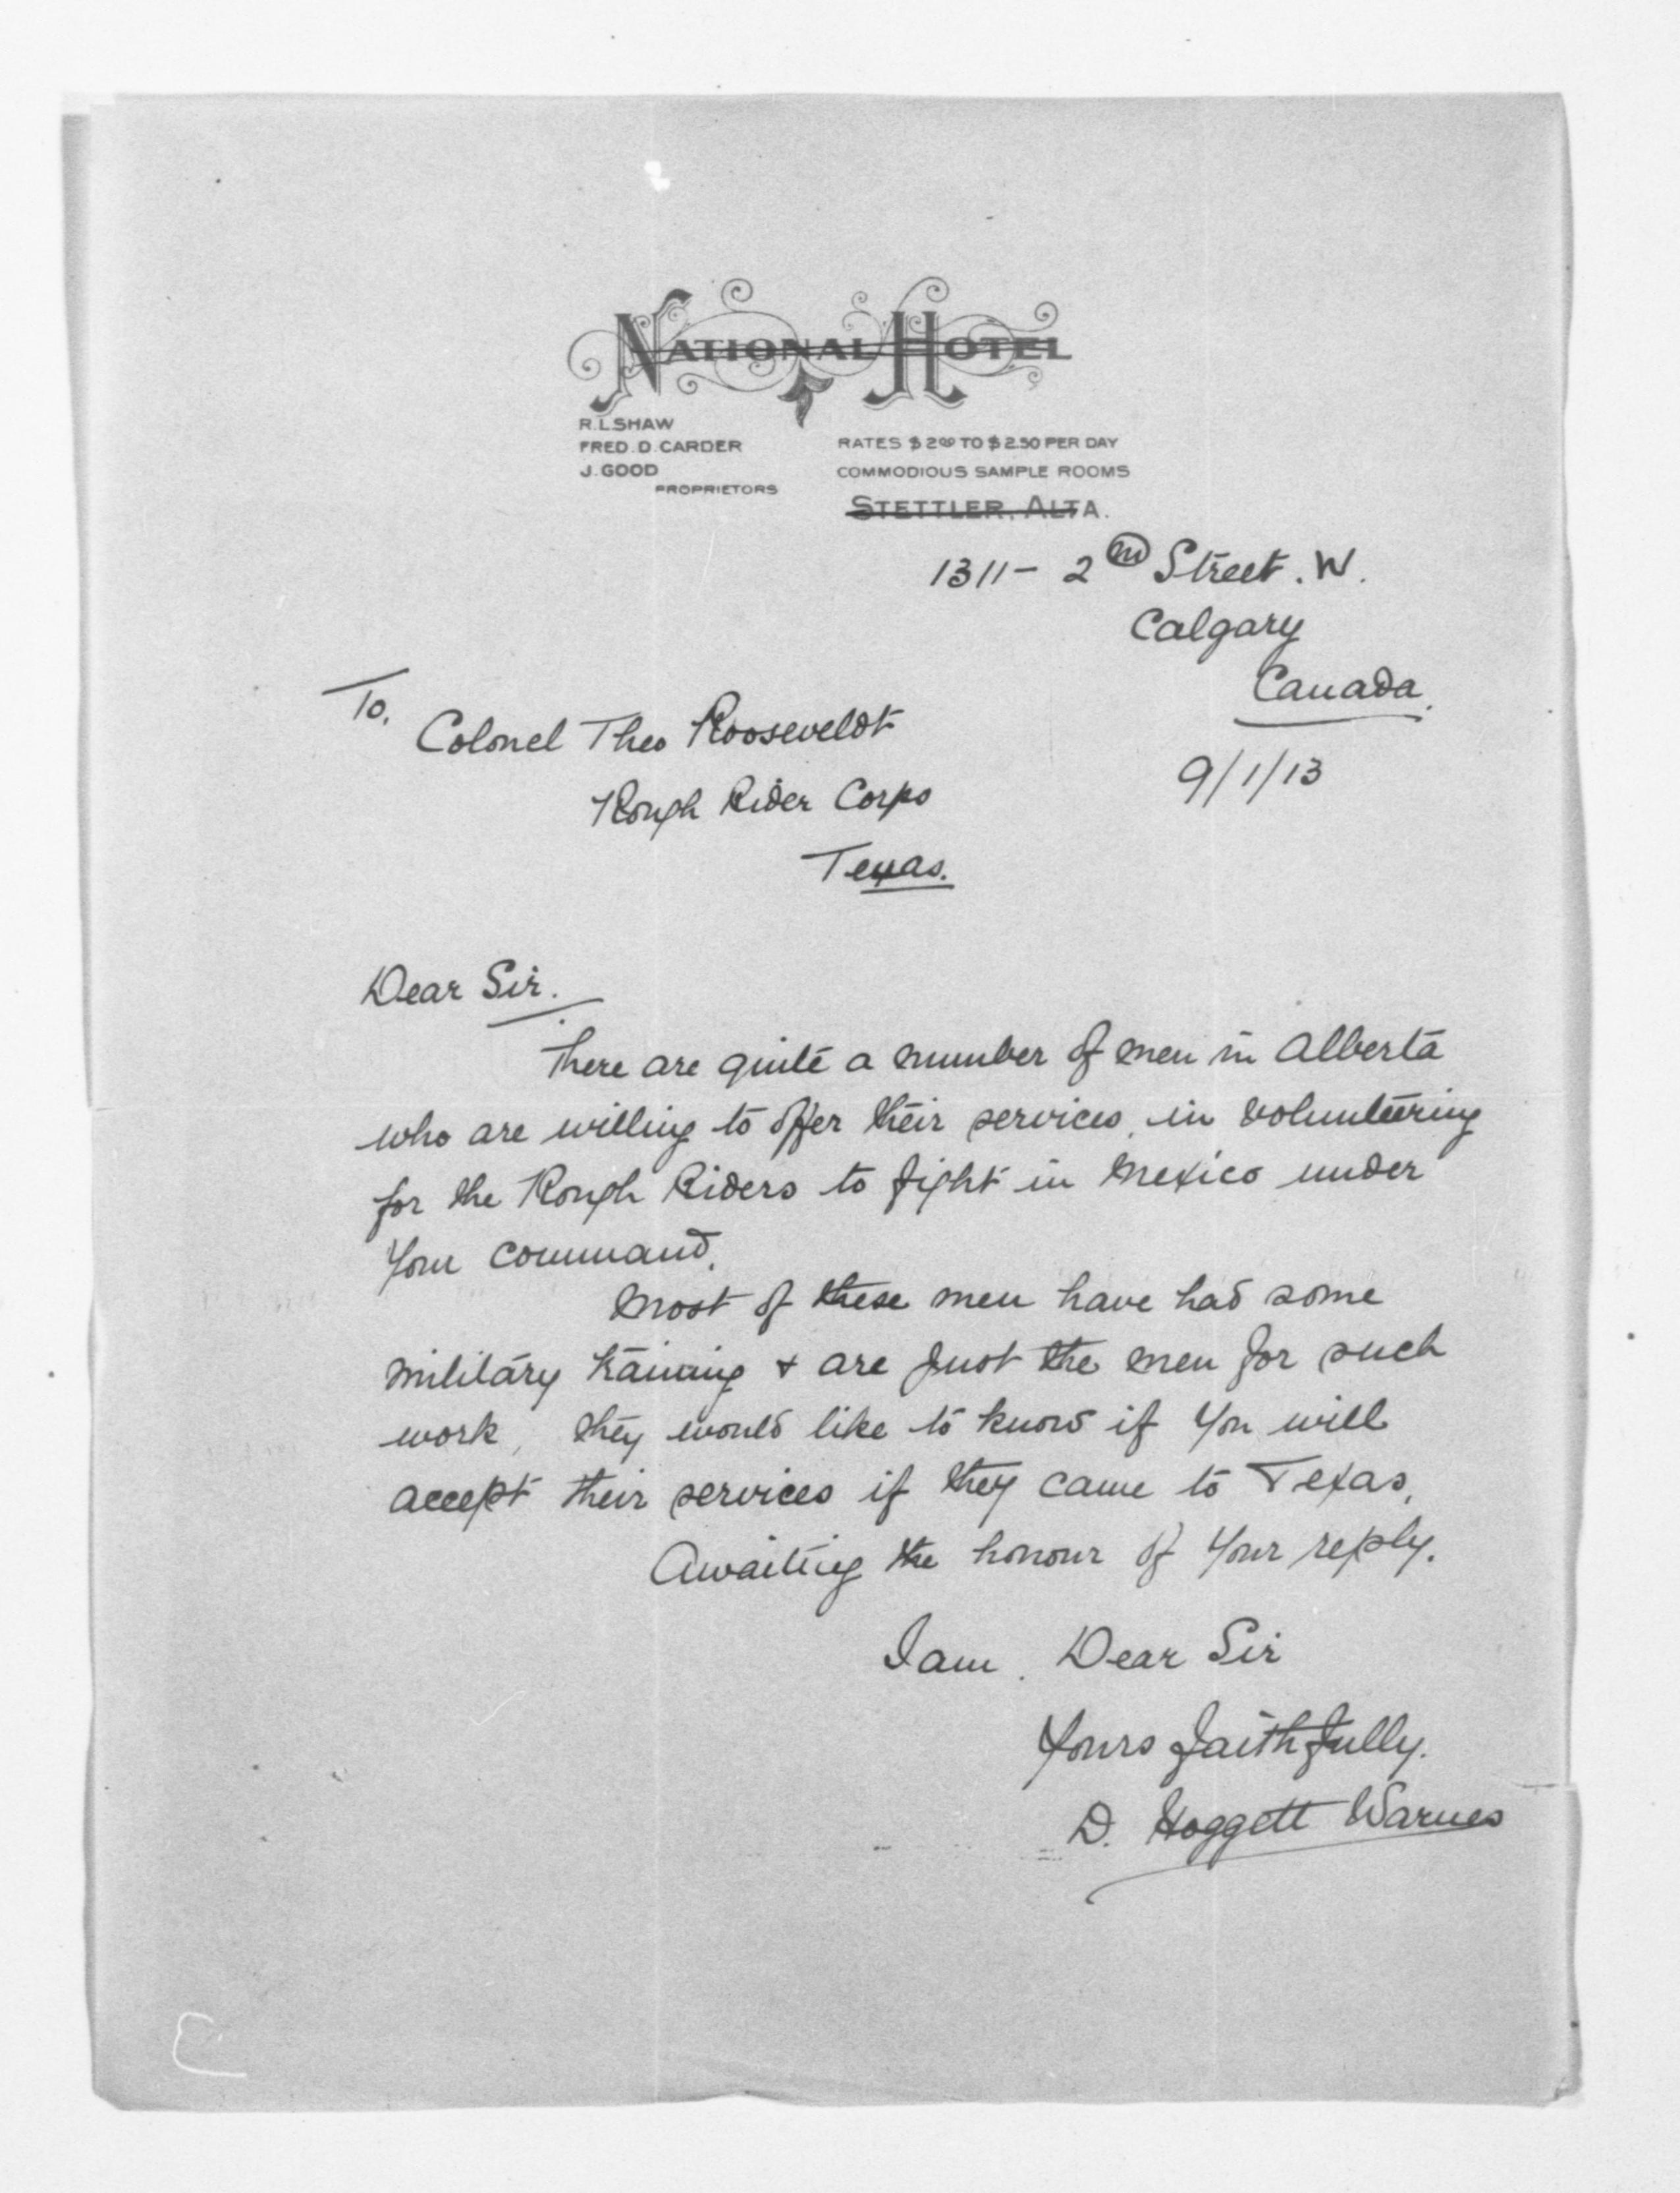 NATIONAL HOTEL
R.L.SHAW
FRED. D. CARDER
J. GOOD
PROPRIETORS
RATES $2.00 TO $2.50 PER DAY
COMMODIOUS SAMPLE ROOMS
STETTLER, ALTA.
1311 - 2nd Street. W.
Calgary
Canada.
9/1/13
To.
Colonel Theo Rooseveldt
Rough Rider Corps
Texas.
Dear Sir.
There are quite a number of men in Alberta
who are willing to offer their services, in volunteering
for the Rough Riders to fight in Mexico under
your command.
Most of these men have had some
military training & are just the men for such
work, they would like to know if you will
accept their services if they came to Texas.
Awaiting the honour of your reply.
I am. Dear Sir
Yours faithfully.
D. Hoggett Warnes